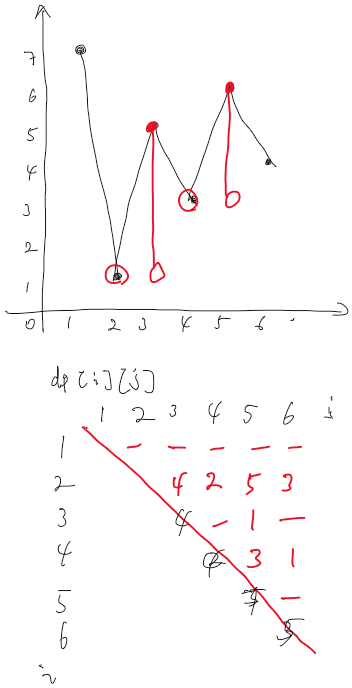 7
6
5
4
3
2
1
0 1 2 3 4 5 6
dp[i][j]
1 2 3 4 5 6 j
1 - - - - -
2 4 2 5 3
3 4 - 1 -
4 3 1
5 -
6
i